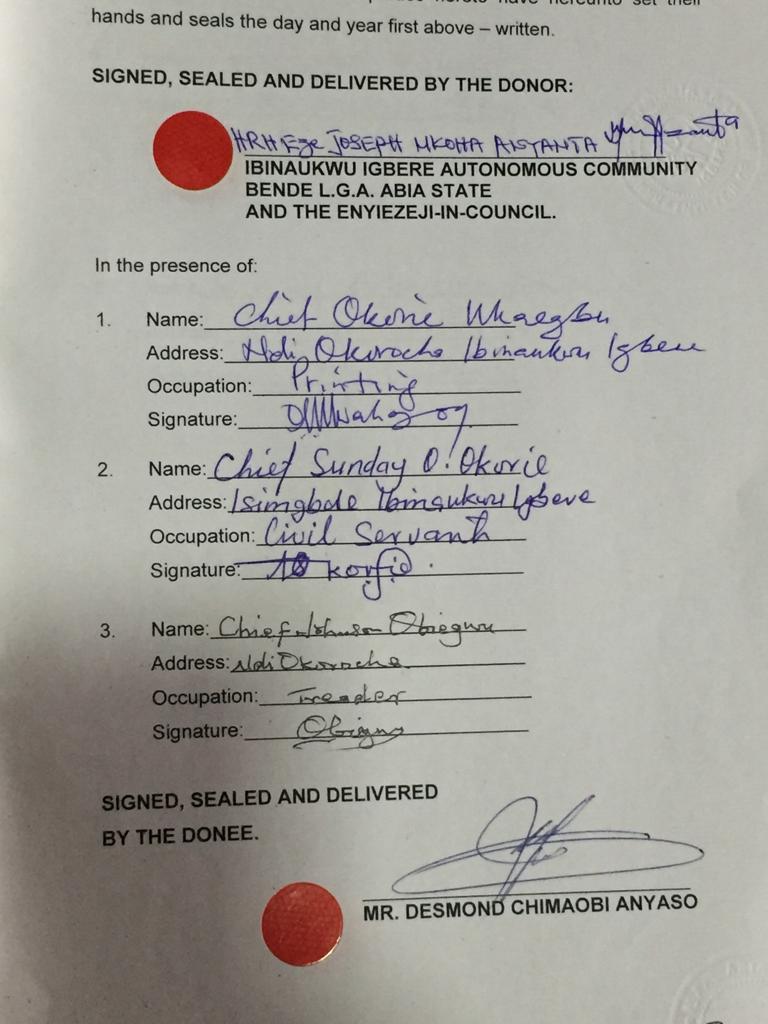 hereto have hereunto set their
hands and seals the day and year first above – written.
SIGNED, SEALED AND DELIVERED BY THE DONOR:
HRH Eze JOSEPH NKOHA
IBINAUKWU IGBERE AUTONOMOUS COMMUNITY
BENDE L.G.A. ABIA STATE
AND THE ENYIEZEJI-IN-COUNCIL.
In the presence of:
1. Name: Chief Okorie
Address: Ndi Okorocha Ibinaukwu Igbere
Occupation: Printing
Signature:
2. Name: Chief Sunday O. Okorie
Address: Ibinaukwu Igbere
Occupation: Civil Servant
Signature:
3. Name: Chief Johnson Obiegwu
Address: Ndi Okorocha
Occupation: Treader
Signature:
SIGNED, SEALED AND DELIVERED
BY THE DONEE.
MR. DESMOND CHIMAOBI ANYASO